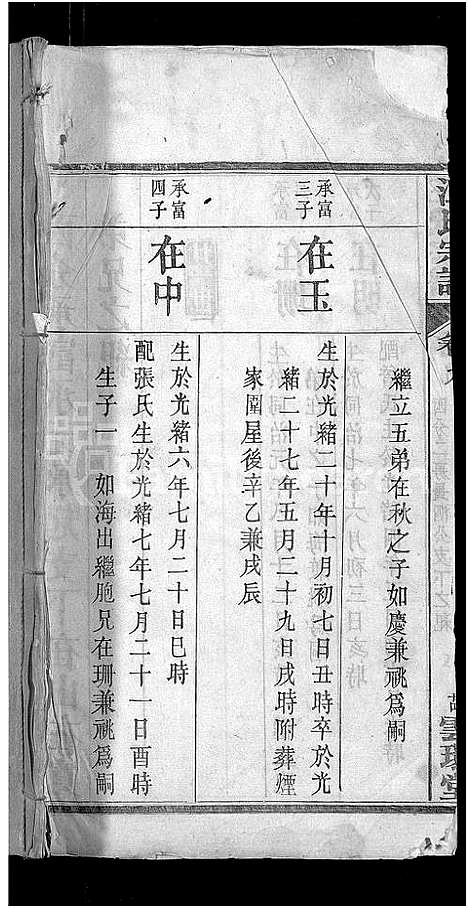 氏宗譜
繼立五弟在秋之子如慶兼祧爲嗣
承富
三子
在玉
生於光緒二十年十月初七日丑時卒於光
緒二十七年五月二十九日戌時附葬煙
家園屋後辛乙兼戌辰
承富
四子
在中
生於光緒六年七月二十日巳時
配張氏生於光緒七年七月二十一日酉時
生子一 如海出繼胞兄在珊兼祧爲嗣